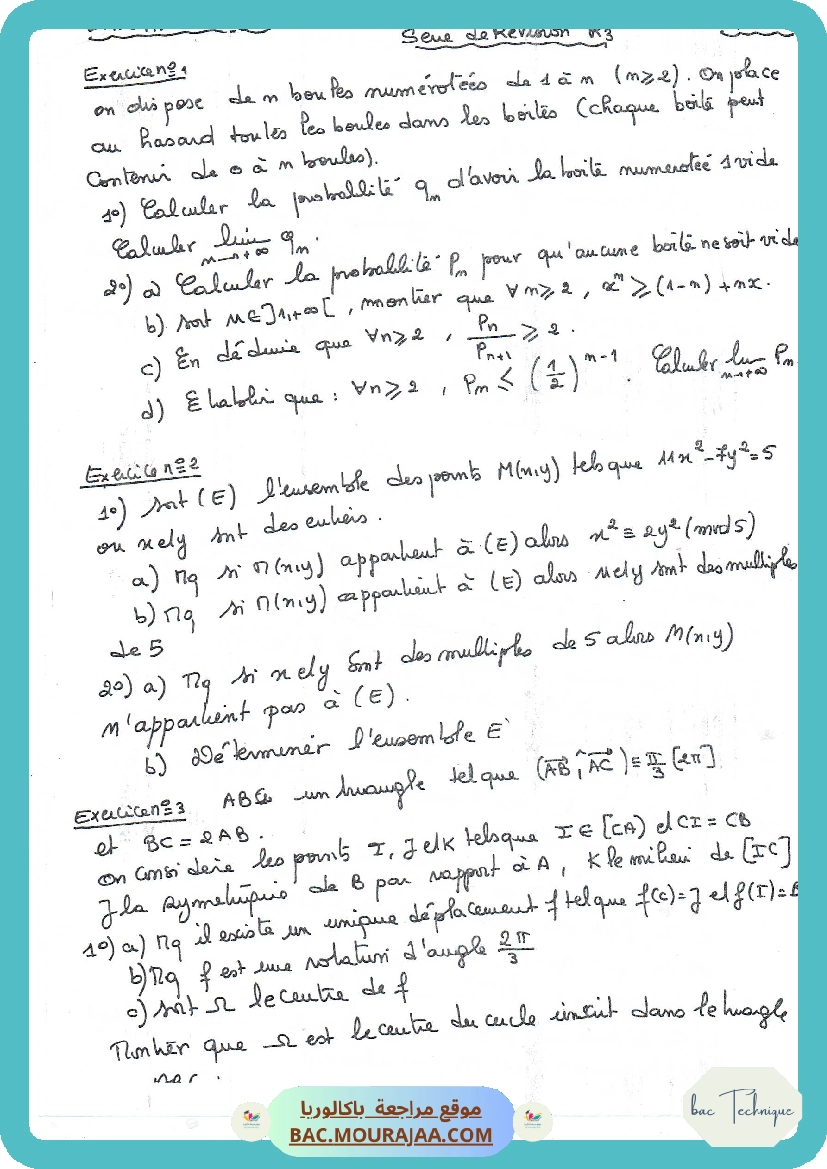 Serie de Révision N3
Exercice nº1
on dispose de n boules numérotées de 1 à n (n⩾2). On place
au hasard toutes les boules dans les boites (chaque boite peut
contenir de 0 à n boules).
1º) Calculer la probabilité qn d'avoir la boite numerotée 1 vide
Calculer lim qn.
n→+∞
2º) a) Calculer la probabilité Pn pour qu'aucune boite ne soit vide
b) soit x ∈ ]1,+∞[, montrer que ∀n⩾2, xⁿ ⩾ (1-n)+nx.
c) En déduire que ∀n⩾2, Pn/Pn+1 ⩾ 2.
d) Etablir que : ∀n⩾2, Pn ⩽ (1/2)ⁿ⁻¹. Calculer lim Pn
n→+∞
Exercice nº2
1º) soit (E) l'ensemble des points M(x,y) tels que 11x²-7y²=5
ou x et y sont des entiers.
a) Mq si M(x,y) appartient à (E) alors x² ≡ 2y² (mod 5)
b) Mq si M(x,y) appartient à (E) alors x et y sont des multiples
de 5
2º) a) Mq si x et y sont des multiples de 5 alors M(x,y)
n'appartient pas à (E).
b) Déterminer l'ensemble E
Exercice nº3 ABC un triangle tel que (AB, AC) ≡ π/3 [2π]
et BC = 2AB.
On considère les points I, J et K tels que I ∈ [CA) et CI = CB
J la symetrique de B par rapport à A, K le milieu de [IC]
1º) a) Mq il existe un unique déplacement f tel que f(C)=J et f(I)=B
b) Mq f est une rotation d'angle 2π/3
c) soit Ω le centre de f
Montrer que Ω est le centre du cercle inscrit dans le triangle
موقع مراجعة باكالوريا
BAC.MOURAJAA.COM
bac Technique